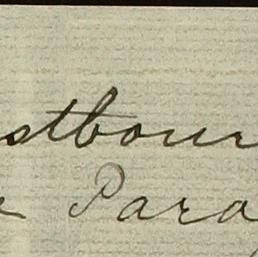 stbour
Para